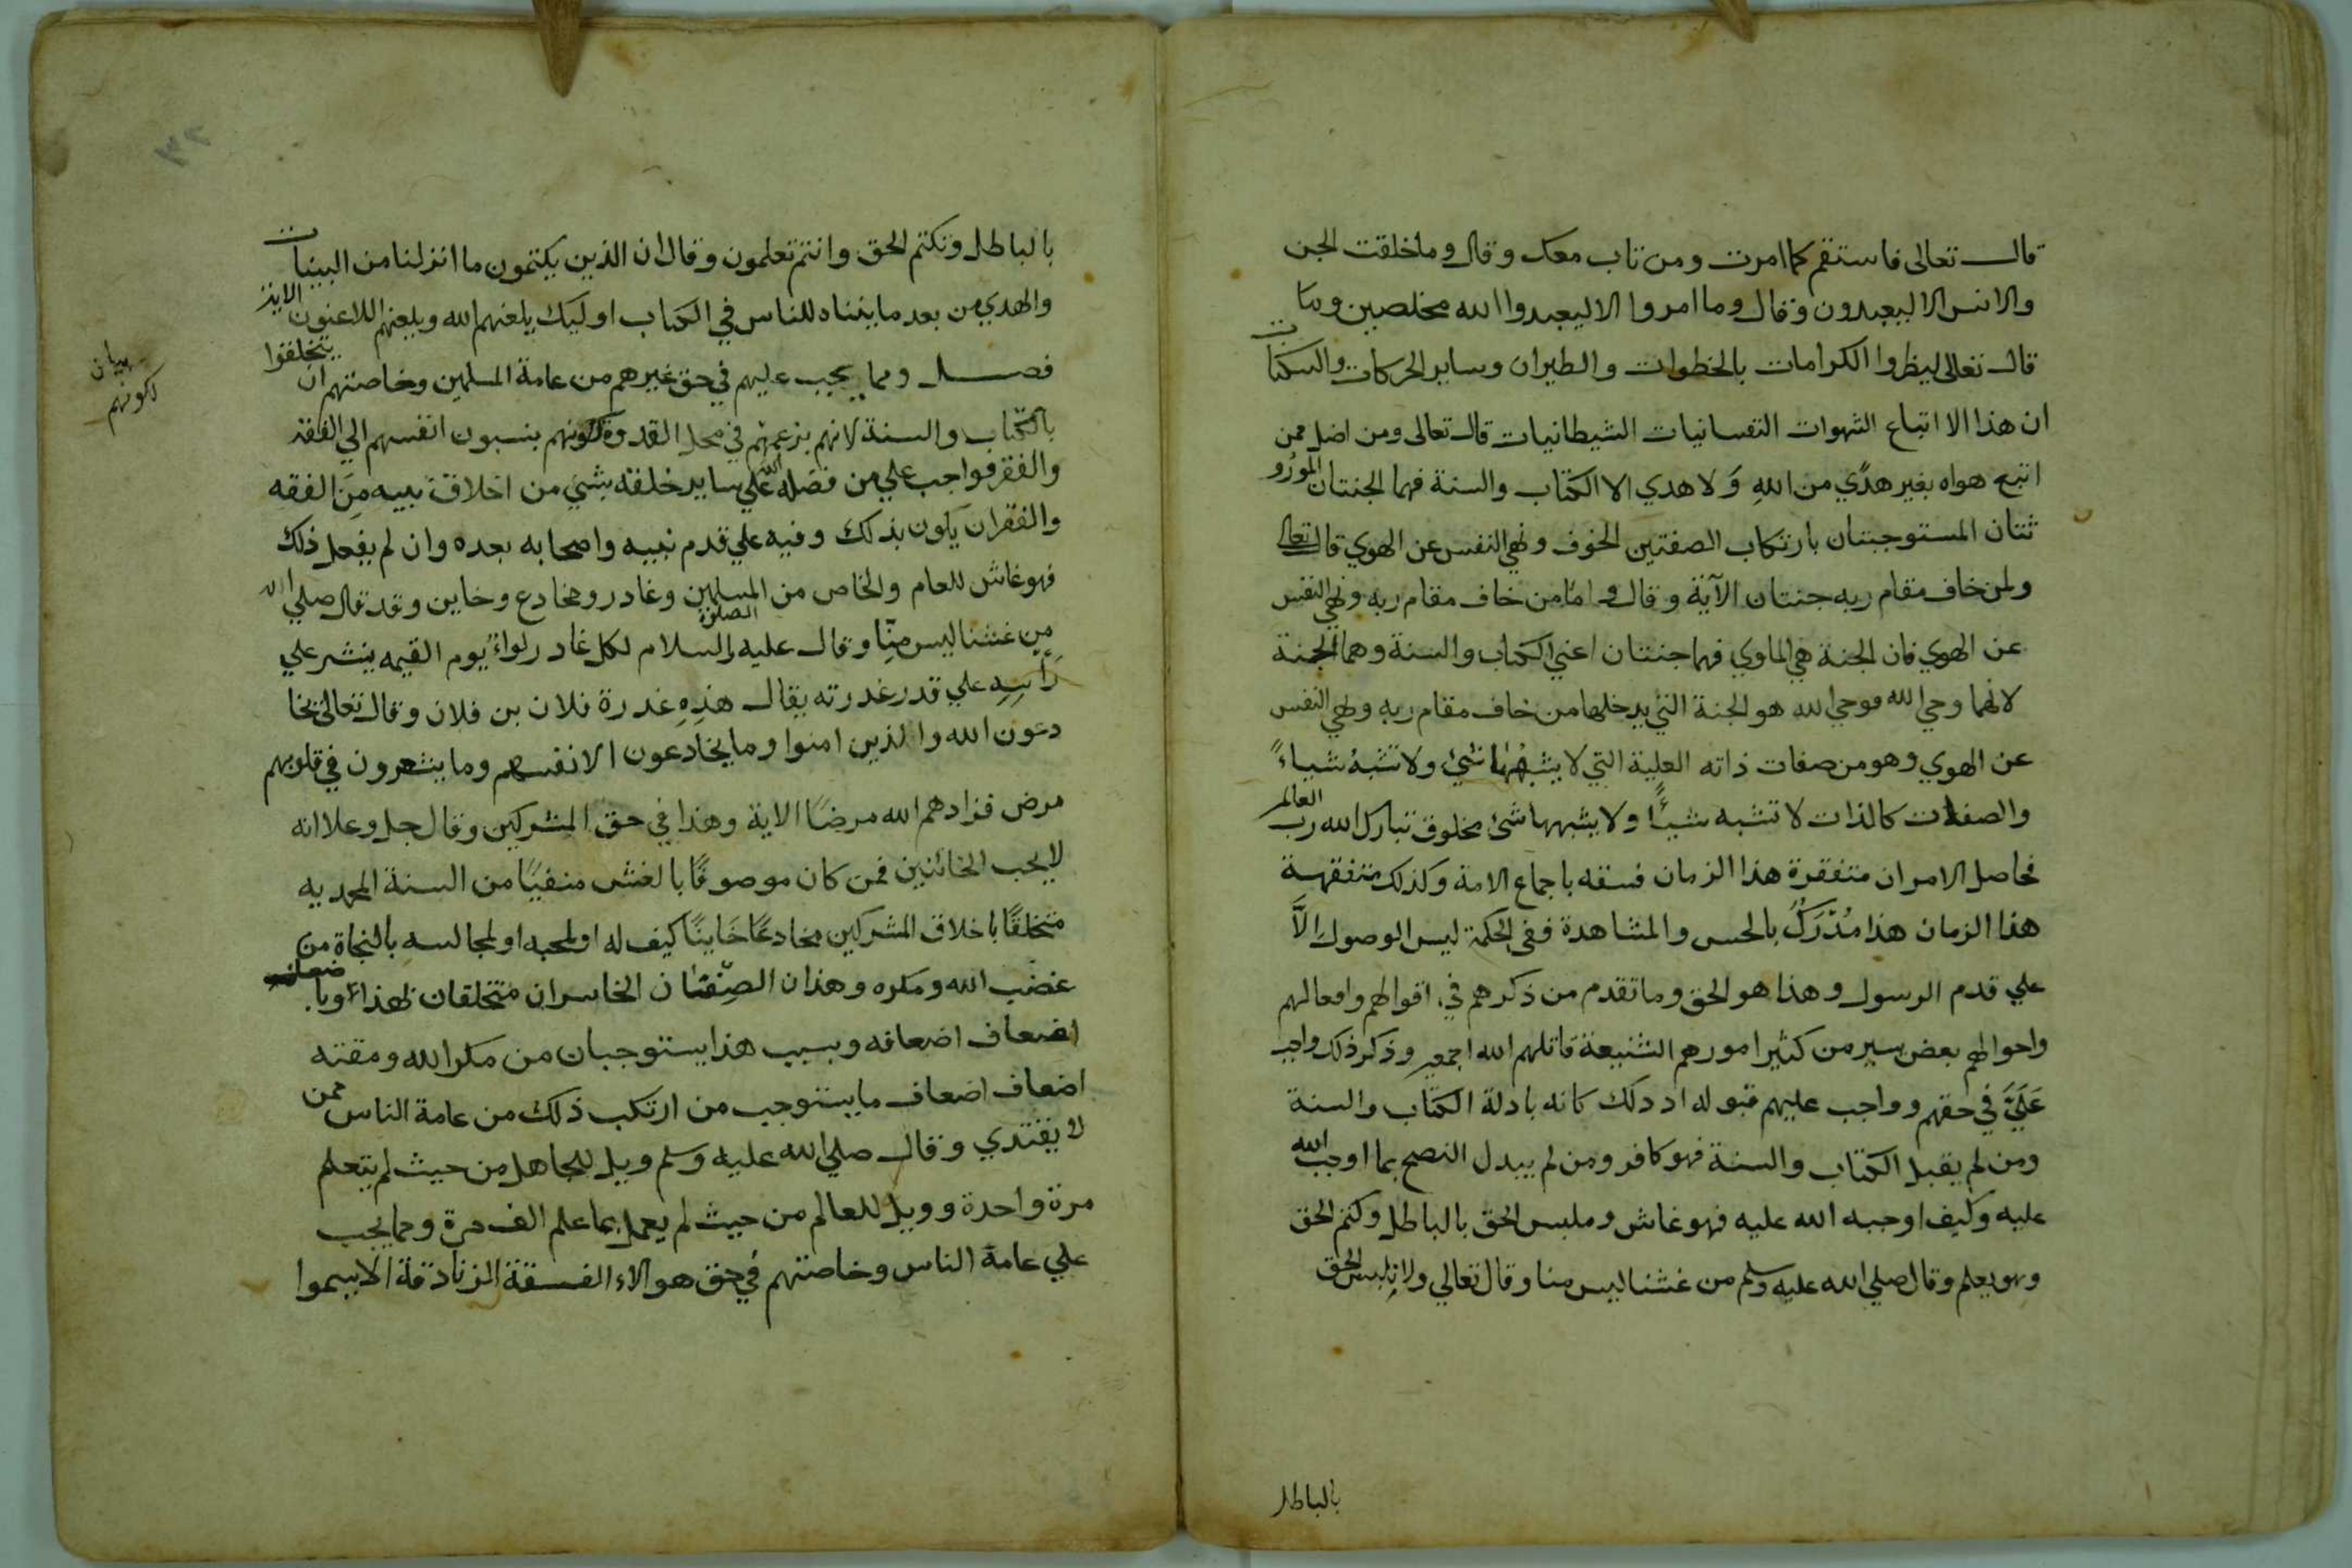 قال تعالى فاستقم كما امرت ومن تاب معك وقال وما خلقت الجن
والانس الا ليعبدون وقال وما امروا الا ليعبدوا الله مخلصين وما
قال تعالى ليظهروا الكرامات بالخطوات والطيران وساير الحركات والسكنات
ان هذا الا اتباع الشهوات النفسانيات الشيطانيات قال تعالى ومن اضل ممن
اتبع هواه بغير هدًي من اللهِ وَلا هدي الا الكتاب والسنة فهما الجنتان المورُو
ثتان المستوجبتان بارتكاب الصفتين الخوف ونهي النفس عن الهوي قال تعالى
ولمن خاف مقام ربه جنتان الآية وقال واما من خاف مقام ربه ونهي النفس
عن الهوي فان الجنة هي الماوي فهما جنتان اعني الكتاب والسنة وهما الجنة
لانهما وحي الله فوحي الله هو الجنة التي يدخلها من خاف مقام ربه ونهي النفس
عن الهوي وهو من صفات ذاته العلية التي لا يشبهُها شئ ولا تشبهُ شياءً
والصفات كالذات لا تشبه شيئًا ولا يشبهها شئ مخلوق تبارك الله رب العالم
فحاصل الامر ان متفقرة هذا الزمان فسقه باجماع الامة وكذلك متفقهة
هذا الزمان هذا مُدْرَكُ بالحس والمشاهدة ففي الحكمة ليس الوصول الَّا
علي قدم الرسول وهذا هو الحق وما تقدم من ذكرهم في اقوالهم وافعالهم
واحوالهم بعض يسير من كثير امورهم الشنيعة قاتلهم الله اجمعين وذكر ذلك واجب
عَلَيَّ في حقهم وواجب عليهم قبوله اد ذلك كانه بادلة الكتاب والسنة
ومن لم يقبل الكتاب والسنة فهو كافر ومن لم يبدل النصح بما اوجب الله
عليه وكيف اوجبه الله عليه فهو غاش وملبس الحق بالباطل وكتم الحق
وهو يعلم وقال صلي الله عليه وسلم من غشنا ليس منا وقال تعالي ولا تلبس الحق
بالباطل
بالباطل وتكتم الحق وانتم تعلمون وقال ان الذين يكتمون ما انزلنا من البينات
والهدي من بعد ما بيناه للناس في الكتاب اوليك يلعنهم الله ويلعنهم اللاعنون الاية
فصل ومما يجب عليهم في حق غيرهم من عامة المسلمين وخاصتهم ان يتخلقوا
بالكتاب والسنة لانهم بزعمهم في محل القدوة لكونهم ينسبون انفسهم الي الفقه
بيان
لكونهم
والفقر فواجب علي من فضله الله علي ساير خلقه بشئ من اخلاق نبيه مِنَ الفقه
والفقر ان يكون بذلك وفيه علي قدم نبيه واصحابه بعده وان لم يفعل ذلك
فهو غاش للعام والخاص من المسلمين وغادر ومخادع وخاين وقد قال صلي الله
من غشنا ليس منّا وقال عليه الصلوة والسلام لكل غادر لواءٌ يوم القيمه ينشر علي
رَأسِهِ علي قدر غدرته يقال هذِهِ غدرة فلان بن فلان وقال تعالى يخا
دعون الله والذين امنوا وما يخادعون الا انفسهم وما يشعرون في قلوبهم
مرض فزادهم الله مرضًا الاية وهذا في حق المشركين وقال جل وعلا انه
لا يحب الخائنين فمن كان موصوفًا بالغش منفيًا من السنة المحمديه
متخلقًا باخلاق المشركين مخادعًا خَاينًا كيف له او لمحبه او لمجالسه بالنجاة من
غضب الله ومكره وهذان الصِّفتان الخاسران متخلقان بهذا وبا
اضعاف اضعافه وبسبب هذا يستوجبان من مكر الله ومقته
اضعاف اضعاف ما يستوجب من ارتكب ذلك من عامة الناس ممن
لا يقتدي وقال صلي الله عليه وسلم ويل للجاهل من حيث لم يتعلم
مرة واحدة وويل للعالم من حيث لم يعمل بما علم الف مرة ومما يجب
علي عامة الناس وخاصتهم في حق هوالاء الفسقة الزنادقة الا يسموا